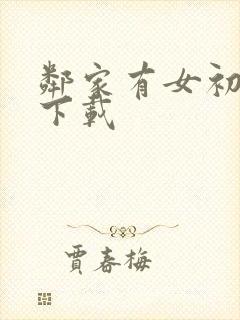 鄰家有女初
下載
賈春梅